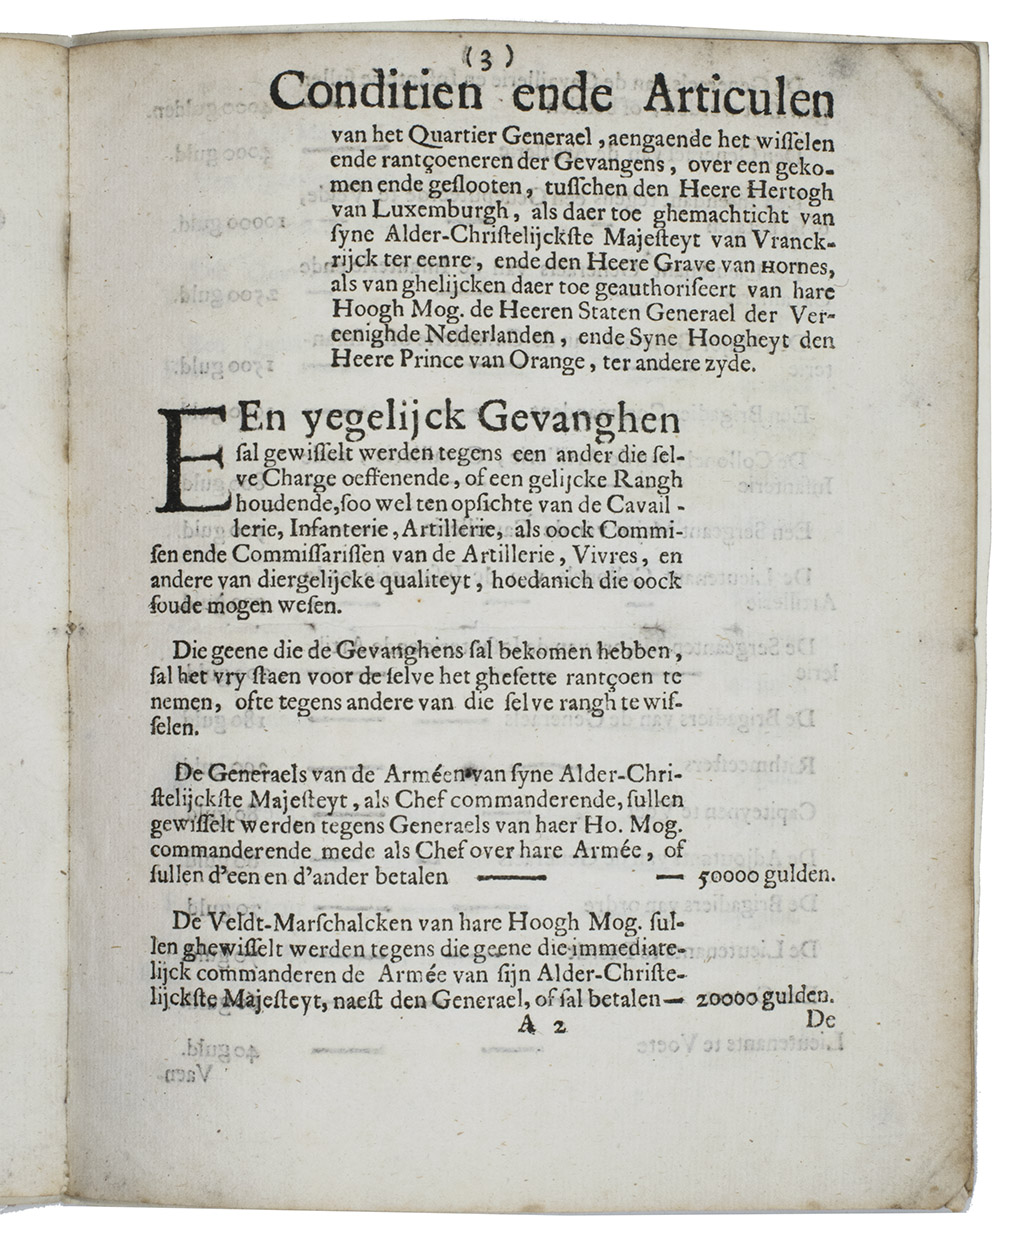 (3)
Conditien ende Articulen
van het Quartier Generael, aengaende het wiſſelen
ende rantçoeneren der Gevangens, over een geko-
men ende geſlooten, tuſſchen den Heere Hertogh
van Luxemburgh, als daer toe ghemachticht van
ſyne Alder-Chriſtelijckſte Majeſteyt van Vranck-
rijck ter eenre, ende den Heere Grave van Hornes,
als van ghelijcken daer toe geauthoriſeert van hare
Hoogh Mog. de Heeren Staten Generael der Ver-
eenighde Nederlanden, ende Syne Hoogheyt den
Heere Prince van Orange, ter andere zyde.
EEn yegelijck Gevanghen
ſal gewiſſelt werden tegens een ander die ſel-
ve Charge oeffenende, of een gelijcke Rangh
houdende, ſoo wel ten opſichte van de Cavail-
lerie, Infanterie, Artillerie, als oock Commi-
ſen ende Commiſſariſſen van de Artillerie, Vivres, en
andere van diergelijcke qualiteyt, hoedanich die oock
ſoude mogen weſen.
Die geene die de Gevanghens ſal bekomen hebben,
ſal het vry ſtaen voor de ſelve het gheſette rantçoen te
nemen, ofte tegens andere van die ſelve rangh te wiſ-
ſelen.
De Generaels van de Arméen van ſyne Alder-Chri-
ſtelijckſte Majeſteyt, als Chef commanderende, ſullen
gewiſſelt werden tegens Generaels van haer Ho. Mog.
commanderende mede als Chef over hare Armée, of
ſullen d'een en d'ander betalen —— — 50000 gulden.
De Veldt-Marſchalcken van hare Hoogh Mog. ſul-
len ghewiſſelt werden tegens die geene die immediate-
lijck commanderen de Armée van ſijn Alder-Chriſte-
lijckſte Majeſteyt, naeſt den Generael, of ſal betalen — 20000 gulden.
A 2 De